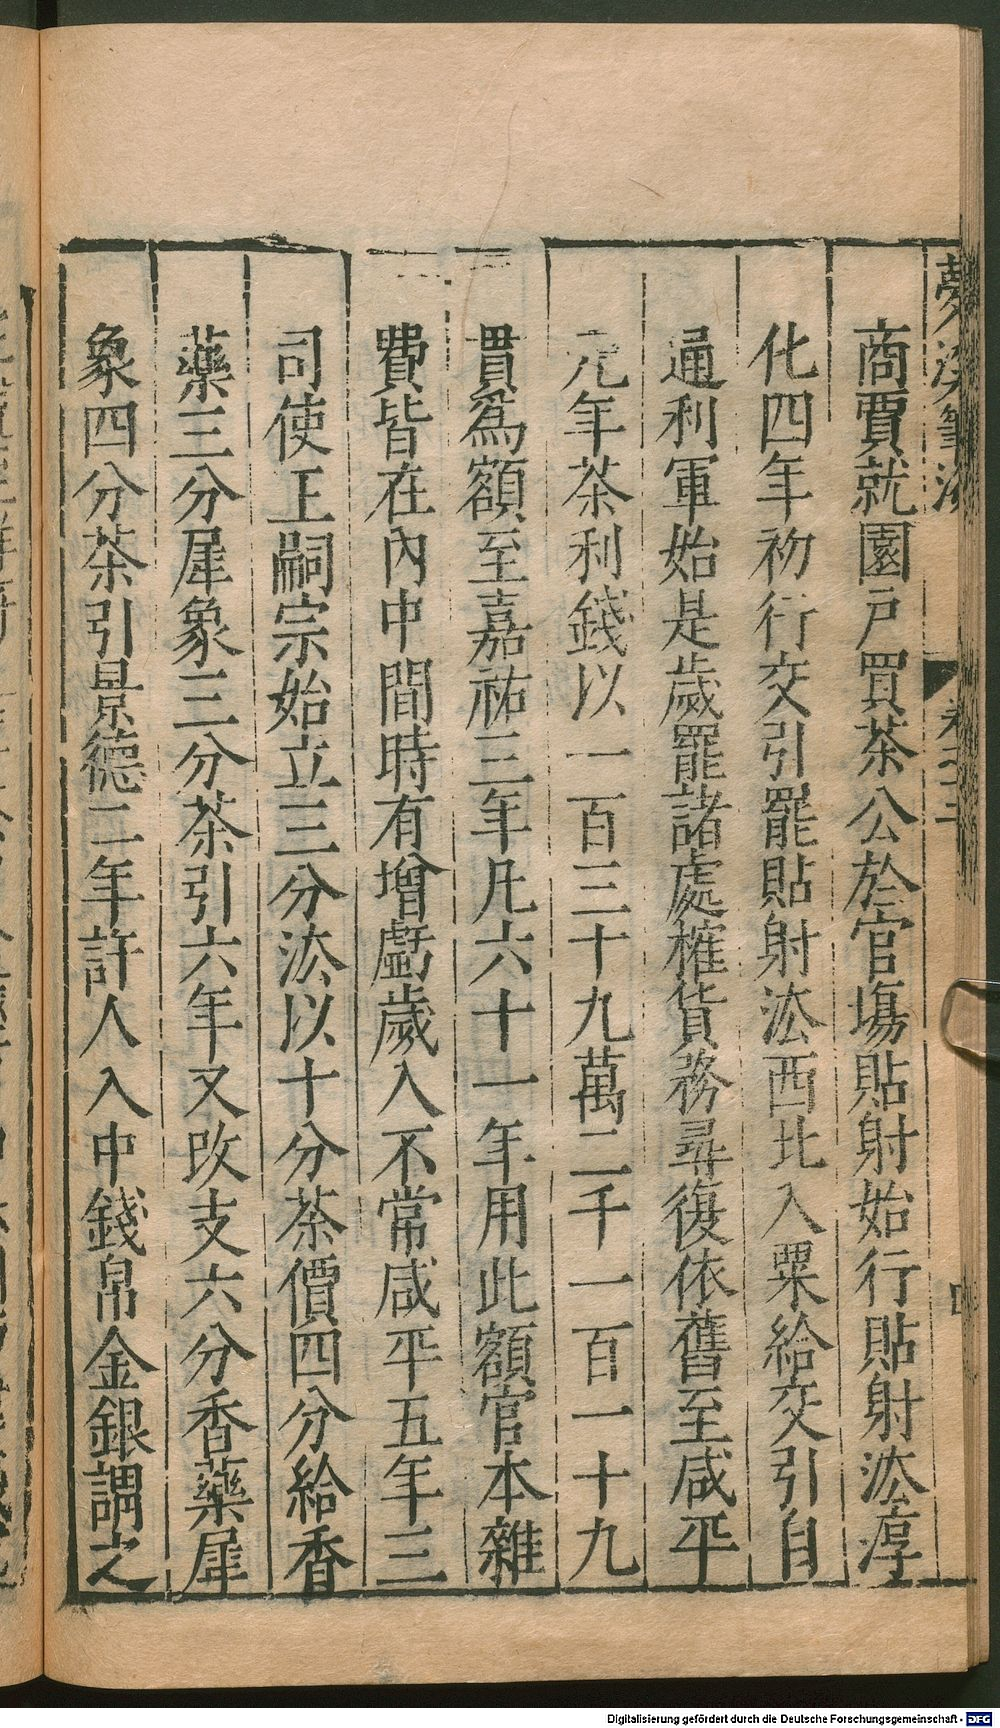 夢溪筆談
卷十二
商賈就園戶買茶公於官場貼射始行貼射法淳
化四年初行交引罷貼射法西北入粟給交引自
通利軍始是歲罷諸處榷貨務尋復依舊至咸平
元年茶利錢以一百三十九萬二千一百一十九
貫爲額至嘉祐三年凡六十一年用此額官本雜
費皆在內中間時有增虧歲入不常咸平五年三
司使王嗣宗始立三分法以十分茶價四分給香
藥三分犀象三分茶引六年又改支六分香藥犀
象四分茶引景德二年許人入中錢帛金銀謂之
Digitalisierung gefördert durch die Deutsche Forschungsgemeinschaft - DFG